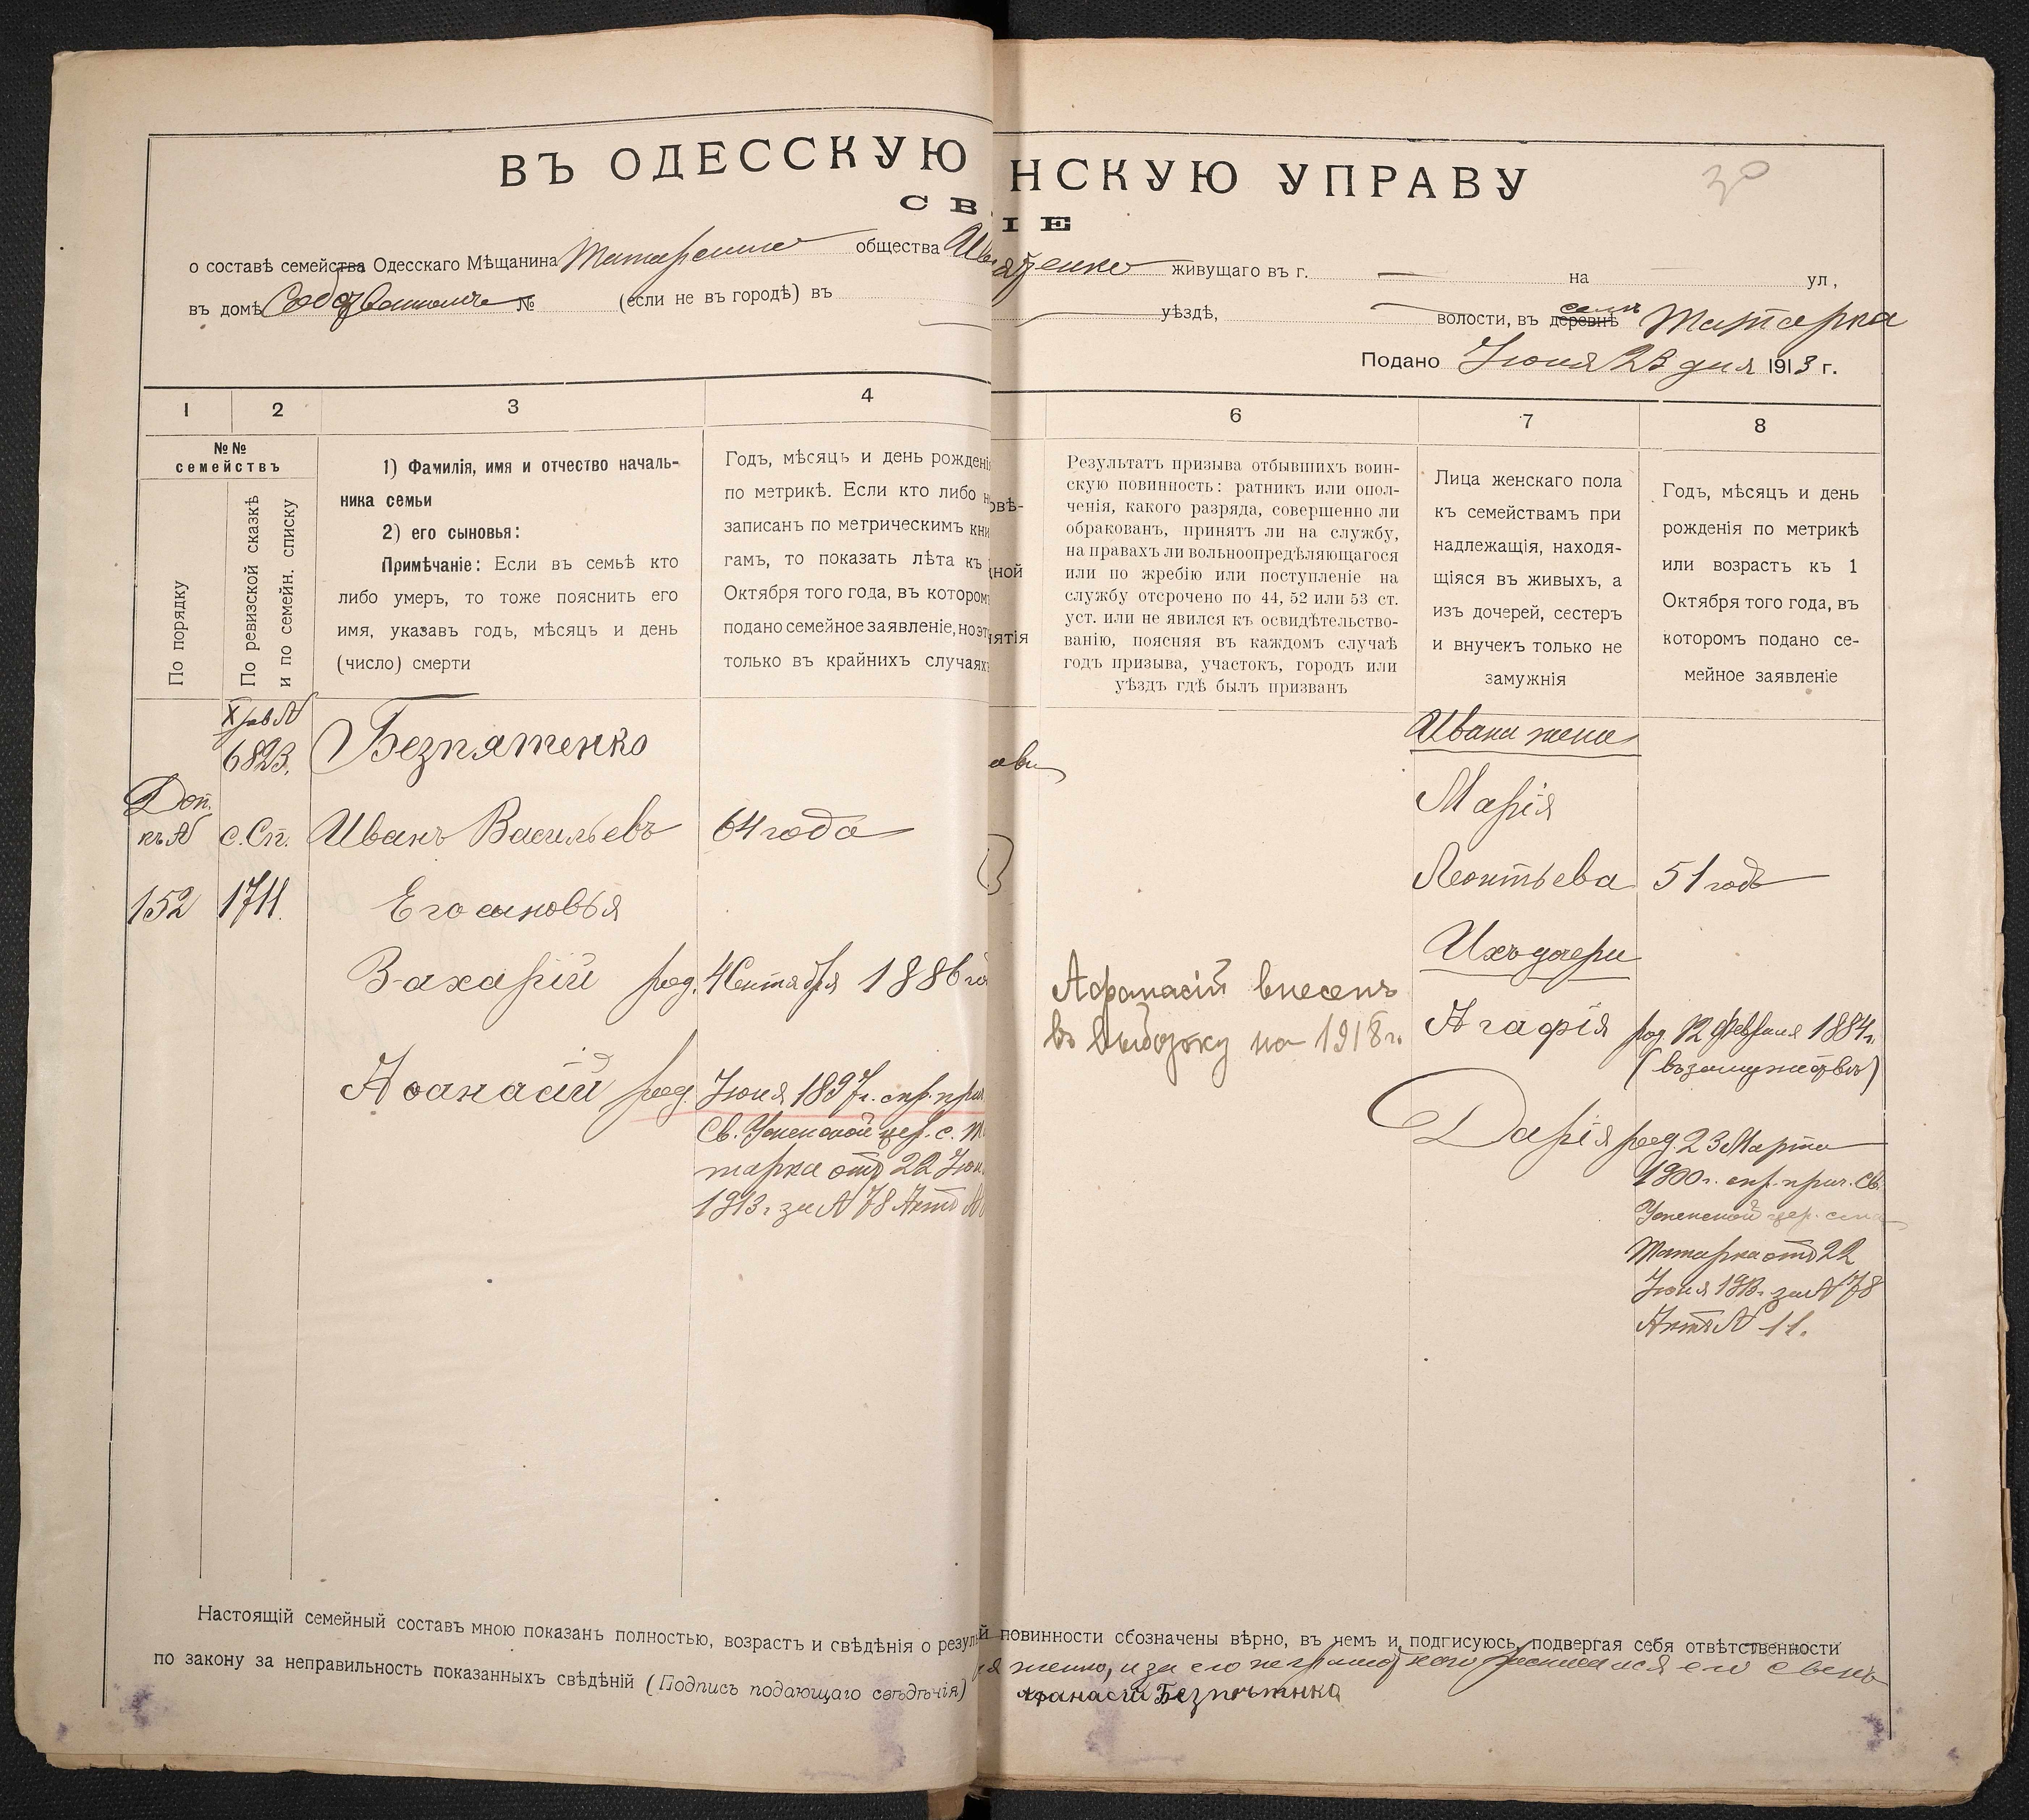 ВЪ ОДЕССКУЮ НСКУЮ УПРАВУ
30
СВ ІЕ
о составѣ семейства Одесскаго Мѣщанина Татарскаго общества живущаго въ г. — на — ул,
въ домѣ № (если не въ городѣ) въ уѣздѣ, волости, въ деревнѣ селѣ Татарка
Подано Іюня 23 дня 1913 г.
1 2 3 4 6 7 8
№№ семействъ
По порядку
По ревизской сказкѣ
и по семейн. списку
1) Фамилія, имя и отчество началь-
ника семьи
2) его сыновья:
Примѣчаніе: Если въ семьѣ кто
либо умеръ, то тоже пояснить его
имя, указавъ годъ, мѣсяцъ и день
(число) смерти
Годъ, мѣсяцъ и день рожденія
по метрикѣ. Если кто либо н
записанъ по метрическимъ кни
гамъ, то показать лѣта къ
Октября того года, въ котором
подано семейное заявленіе, но эт
только въ крайнихъ случаях
овѣ-
ной
нятія
Результатъ призыва отбывшихъ воин-
скую повинность: ратникъ или опол-
ченія, какого разряда, совершенно ли
обракованъ, принятъ ли на службу,
на правахъ ли вольноопредѣляющагося
или по жребію или поступленіе на
службу отсрочено по 44, 52 или 53 ст.
уст. или не явился къ освидѣтельство-
ванію, поясняя въ каждомъ случаѣ
годъ призыва, участокъ, городъ или
уѣздъ гдѣ былъ призванъ
Лица женскаго пола
къ семействамъ при
надлежащія, находя-
щіяся въ живыхъ, а
изъ дочерей, сестеръ
и внучекъ только не
замужнія
Годъ, мѣсяцъ и день
рожденія по метрикѣ
или возрастъ къ 1
Октября того года, въ
которомъ подано се-
мейное заявленіе
X рев №
6823.
Безпятенко
Доп.
къ № с.Сп.
152 1711.
Иванъ Васильевъ 64 года
Его сыновья
Захарій род. 4 Сентября 1886 го
Аѳанасій род. Іюня 1897 г. спр. прич
Св. Успенской цер. с.
тарка отъ 22 Іюн
1913 г за № 78 Актъ №
Афанасій внесенъ
въ выборку на 1918 г.
Ивана жена
Марія
Леонтьева 51 годъ
Ихъ дочери
Агафія род. 12 Февраля 1884 г.
(въ замужествѣ)
Дарія род. 23 Марта
1900 г. спр. прич. Св.
Успенской цер. села
Татарка отъ 22
Іюня 1913 г. за № 78
Актъ № 11.
Настоящій семейный составъ мною показанъ полностью, возрастъ и свѣдѣнія о резуль й повинности обозначены вѣрно, въ чемъ и подписуюсь, подвергая себя отвѣтственности
по закону за неправильность показанныхъ свѣдѣній (Подпись подающаго свѣдѣнія) а за его неграмотнаго росписался его сынъ
Афанасій Безпятенко